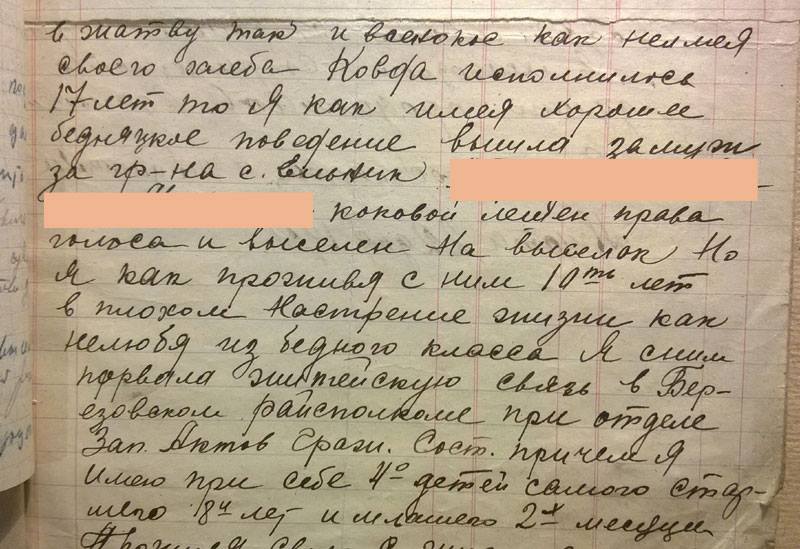 в жатву так и всенокос как неимея
своего хлеба Ковда исполнилось
17 лет то Я как имея хорошее
бедняцкое поведение вышла замуж
за гр-на с.
коковой лешен права
голоса и выселен На выселок Но
Я как прогнивя с ним 10ть лет
в плохом Настрение жизни как
нелюбя из бедного класса Я сним
порвала житейскую связь в Бер-
езовском райсполкоме при отделе
Зап. Актов Гражи. Сост. причем Я
имею при себе 4о детей самого стар-
шего 8и лет и млашего 2х месяцев